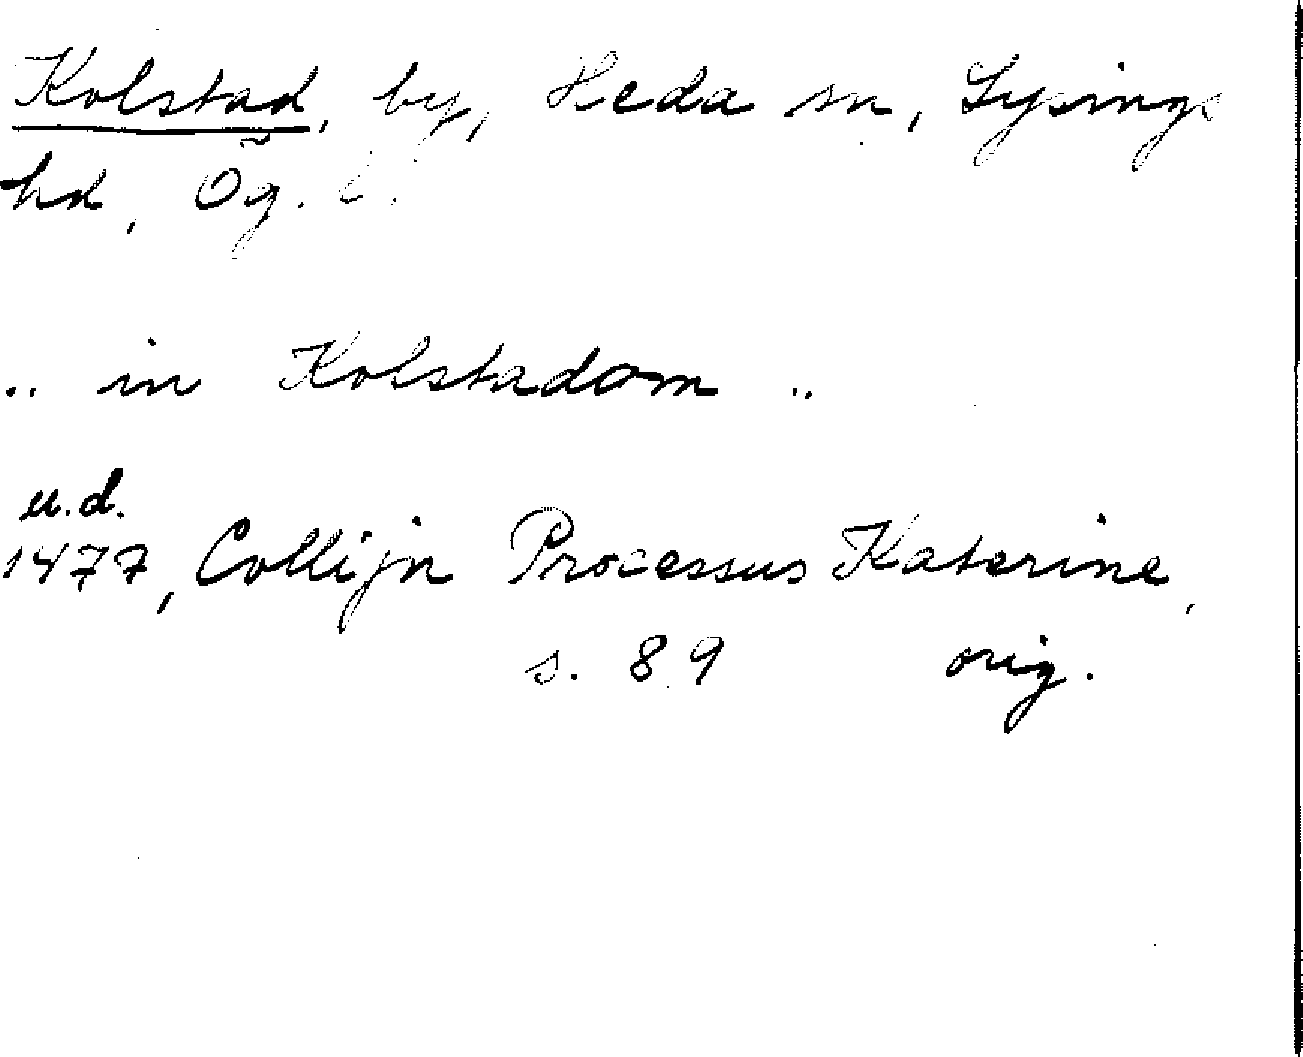 Kolstad, by, Heda sn, Lysings
hd, Ög. l.
.. in Kolstadom ..
u.d.
1477, Collijn Processus Katerine,
s. 89 orig.